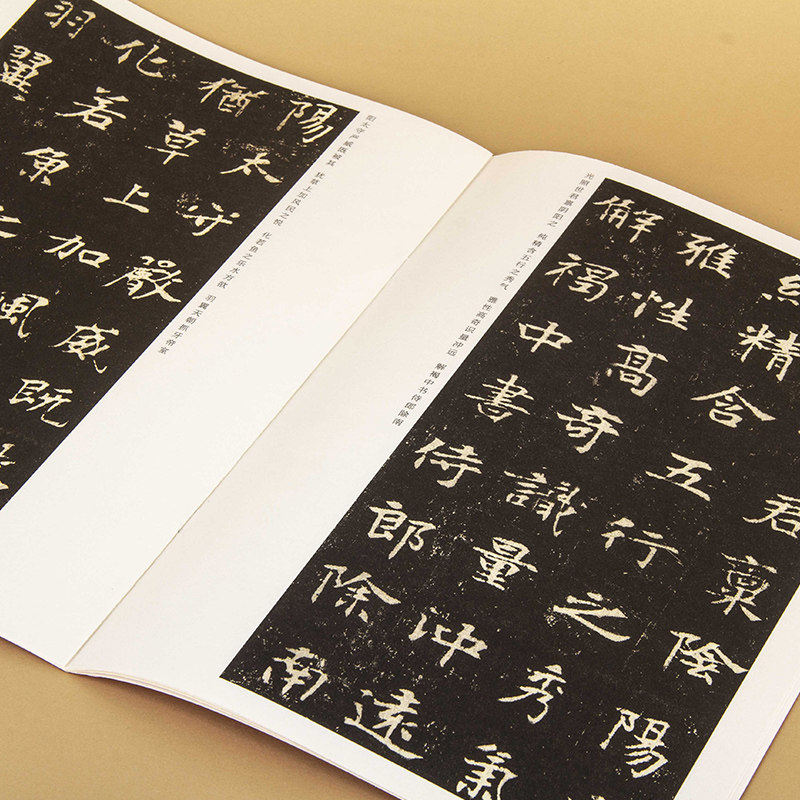 君稟陰陽
純精含五行之秀氣
雅性高奇識量沖遠
解褐中書侍郎除南
光照世君禀阴阳之 纯精含五行之秀气 雅性高奇识量冲远 解褐中书侍郎除南
阳太守严威既被其 犹草上加风民之悦 化若鱼之乐水方欲 羽翼天朝抓牙帝室
陽太守嚴威既
猶草上加風
化若魚之
羽翼